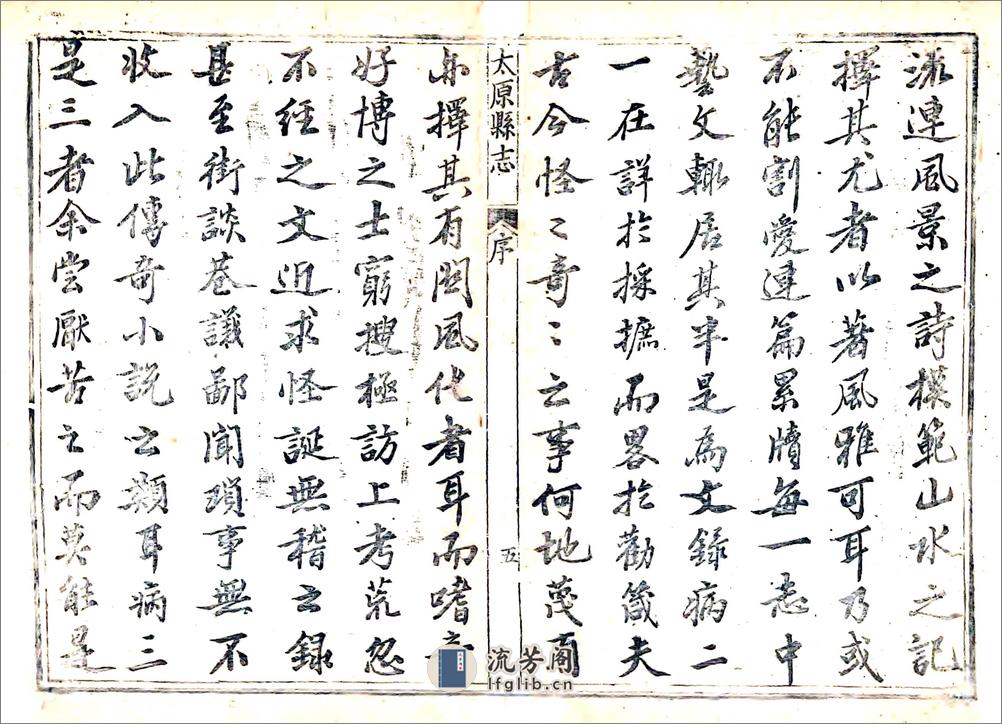 流連風景之詩模範山水之記
擇其尤者以著風雅可耳乃或
不能割愛連篇累牘每一志中
藝文輙居其半是為文錄病二
一在詳於採摭而畧於勸箴夫
古今怪〻奇〻之事何地蔑有
太原縣志 序 五
亦擇其有関風化者耳而嗜奇
好博之士窮搜極訪上考荒忽
不經之文近求怪誕無稽之錄
甚至街談巷議鄙聞瑣事無不
收入此傳奇小說之類耳病三
是三者余嘗厭苦之而莫能是
流芳阁
lfglib.cn